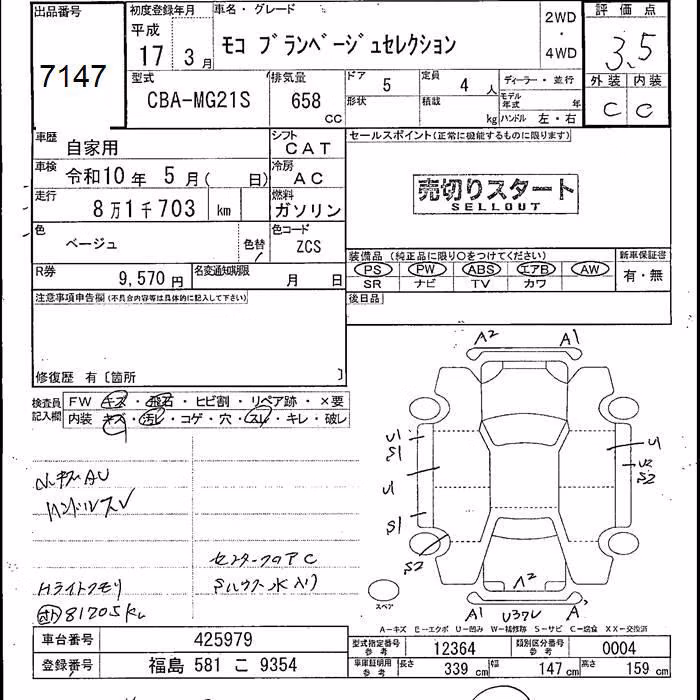 出品番号
7147
初度登録年月
平成
17 3月
車名・グレード
モコ ブランベージュセレクション
2WD
・
4WD
評価点
3.5
外装 内装
C C
型式
CBA-MG21S
排気量
658
CC
ドア
5
定員
4 人
形状
積載
kg
ディーラー・並行
モデル年式 年
ハンドル 左・右
車歴
自家用
シフト
CAT
車検
令和10年 5月( 日)
冷房
AC
走行
8万1千703 km
燃料
ガソリン
色
ベージュ
色替
色コード
ZCS
R券
9,570円
名変通知期限
月 日
セールスポイント(正常に機能するものに限ります)
売切りスタート
SELLOUT
装備品(純正品に限り○をつけてください)
PS PW ABS エアB AW
SR ナビ TV カワ
新車保証書
有・無
後日品
注意事項申告欄(不具合内容等は具体的に記入して下さい)
修復歴 有〔箇所 〕
検査員
記入欄
FW キズ・飛石・ヒビ割・リペア跡・×要
内装 キズ・汚レ・コゲ・穴・スレ・キレ・破レ
ハンドルスレ
Hライトクモリ
81705km
A2 A1
U1
S1
U1
S1
S2
U1
U2
S2
A2
A1
スペア
A-キズ E-エクボ U-凹み W-補修跡 S-サビ C-腐食 XX-交換済
車台番号
425979
登録番号
福島 581 こ 9354
型式指定番号
参考
12364
類別区分番号
参考
0004
車庫証明用
参考
長さ
339 cm
幅
147 cm
高さ
159 cm